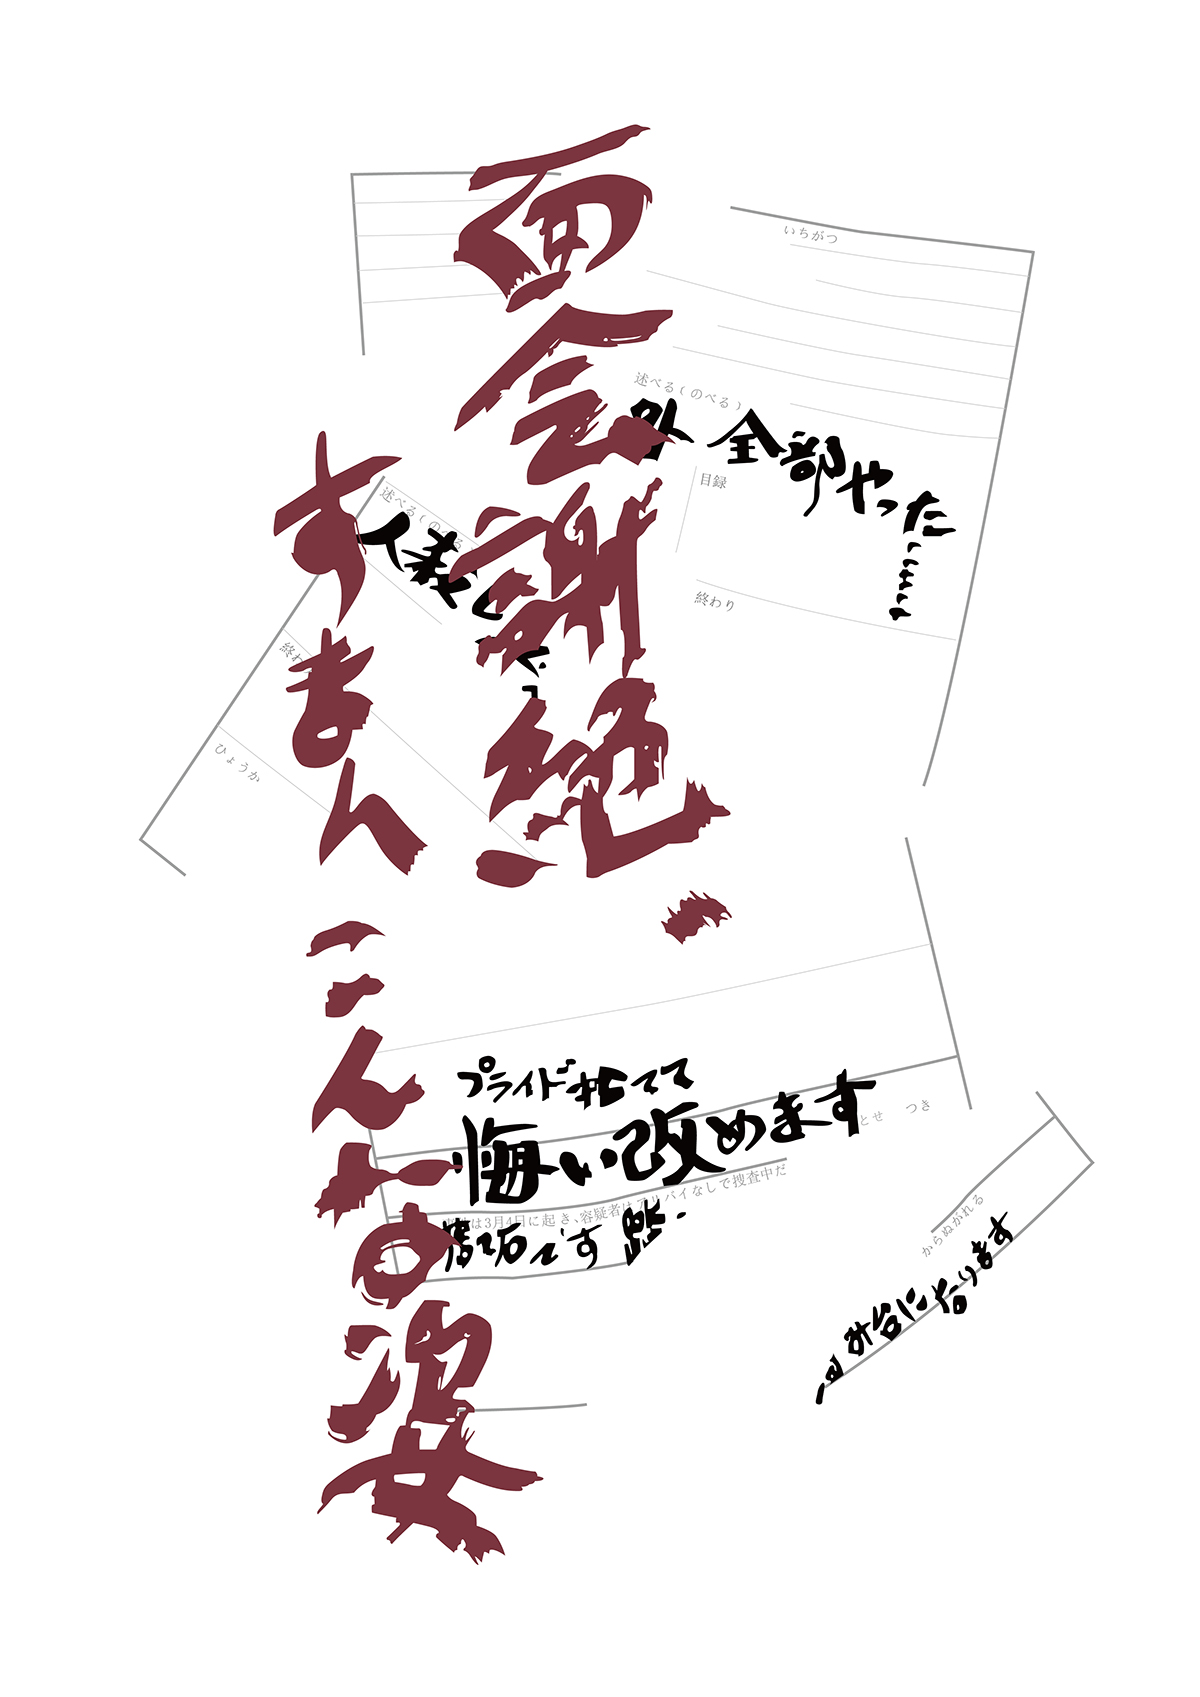 面会謝絶、
すまん こんな姿
いちがつ
述べる(のべる)
外 全部やった……
目録
終わり
述べる(のべる
人殺し
終わ
ひょうか
プライド捨てて
悔い改めます
とせ つき
は3月4日に起き、容疑者はアリバイなしで捜査中だ
です
からぬがれる
み台になります